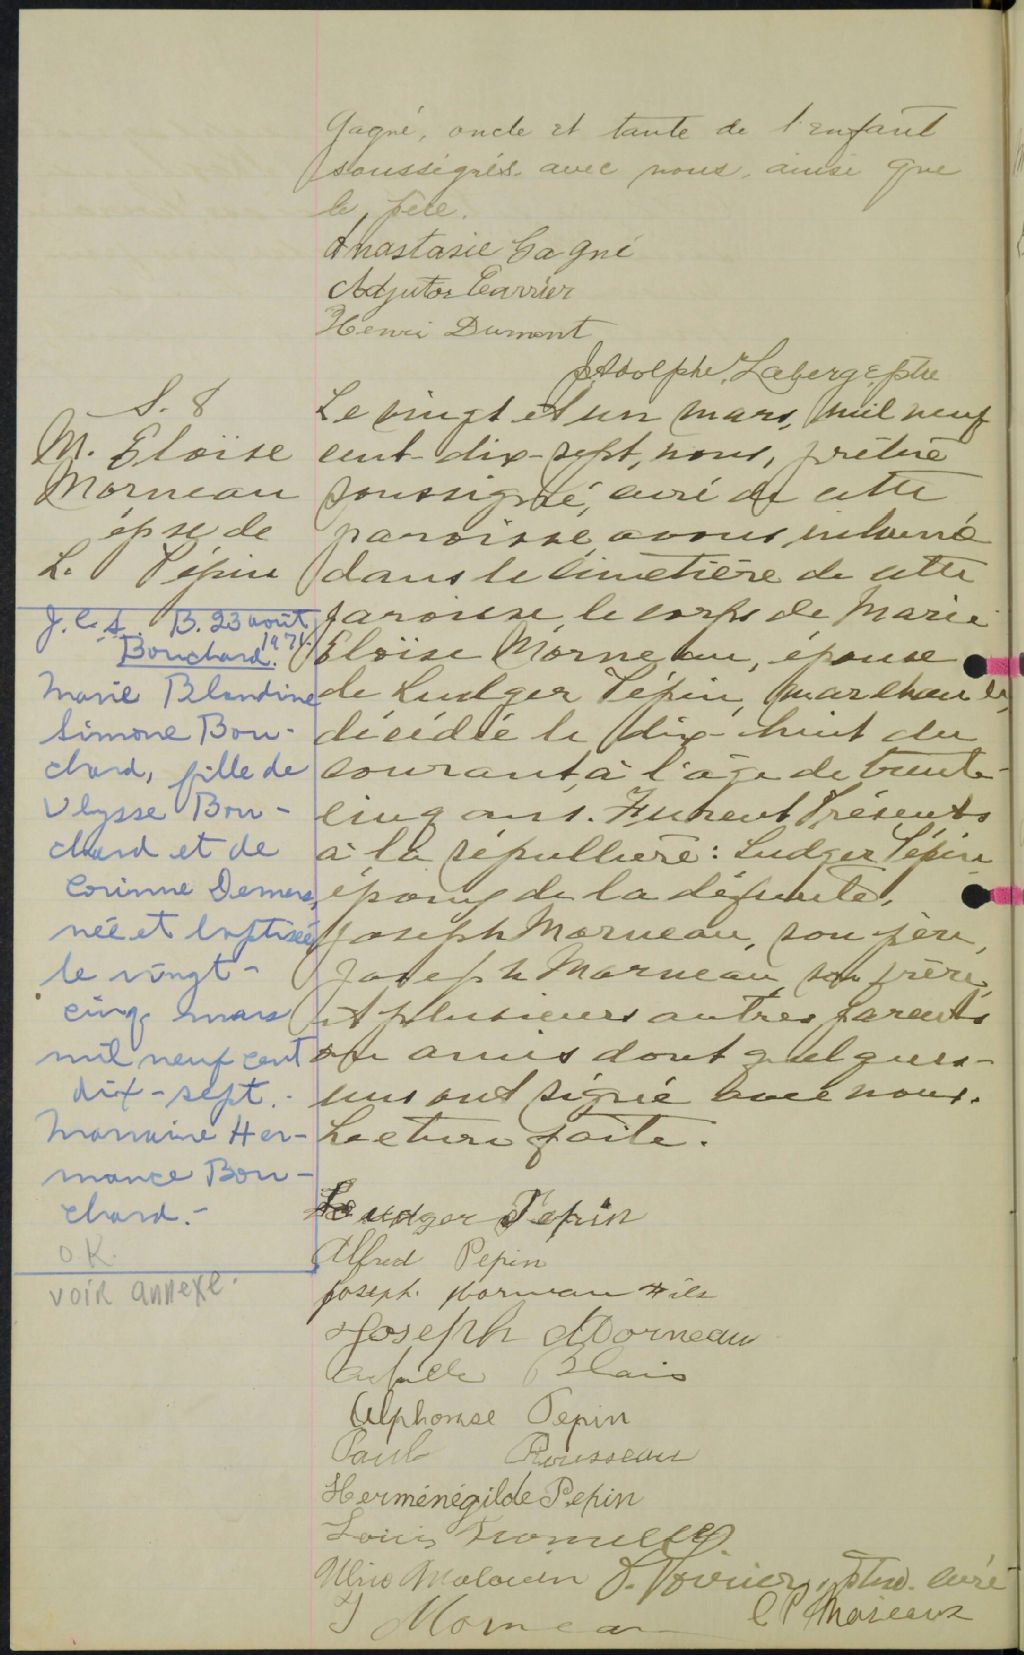 Gagné, oncle et tante de l'enfant
soussignés avec nous, ainsi que
le père.
Anastasie Gagné
Adjutor Carrier
Henri Dumont
J. Adolphe Laberge, ptre
S. 8
M. Eloïse
Morneau
épse de
L. Pépin
Le vingt et un mars, mil neuf
cent-dix-sept, nous, prêtre
soussigné, curé de cette
paroisse, avons inhumé
dans le cimetière de cette
paroisse, le corps de Marie
Eloïse Morneau, épouse
de Ludger Pépin, marchand,
décédée le dix-huit du
courant, à l'âge de trente-
cinq ans. Furent présents
à la sépulture: Ludger Pépin
époux de la défunte,
Joseph Morneau, son père,
Joseph Morneau, son frère,
et plusieurs autres parents
ou amis dont quelques-
uns ont signé avec nous.
Lecture faite.
J.C.S. B. 23 août
1971
Bouchard.
Marie Blandine
Simone Bou-
chard, fille de
Ulysse Bou-
chard et de
Corinne Demers,
née et baptisée
le vingt-
cinq mars
mil neuf cent
dix-sept.-
Marraine Her-
mance Bou-
chard.-
O.K.
voir annexe.
Ludger Pepin
Alfred Pepin
Joseph. Morneau Fils
Joseph Morneau
Blais
Alphonse Pepin
Paul Rousseau
Herménégilde Pepin
Louis
Ulric Malouin J. Poirier, ptre. curé
J Morneau